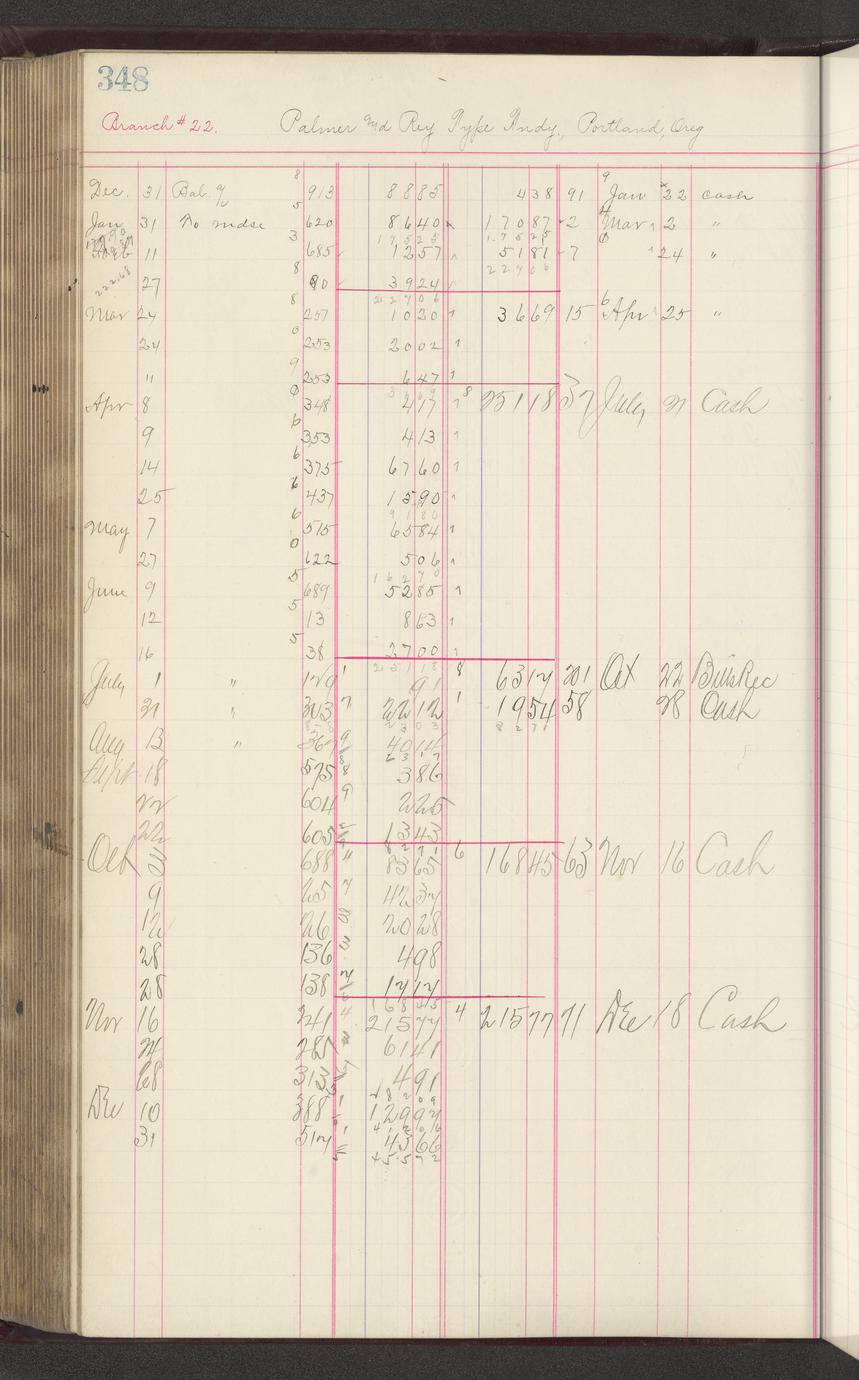 348
Branch # 22. Palmer and Rey Type Fndy., Portland, Oreg
Dec. 31 Bal. 8 913 8885 438 91 9 Jan 22 cash
Jan 31 To mdse 5 620 8640 17087 2 Mar 2 "
17525 17525
11 3 685 1257 5181 7 24 "
22706
222.68 27 8 90 3924
22706
Mar 24 8 257 1020 3669 15 6 Apr 25 "
24 0 253 2002
" 9 253 647
3669
Apr 8 0 348 417 8 25118 37 July 21 Cash
9 6 353 413
14 6 375 6760
25 6 437 1590
9180
May 7 6 515 6584
27 0 622 506
16270
June 9 5 689 5285
12 5 13 863
16 5 38 2700
25118
July 1 " 129 1 91 8 6317 201 Oct 22 Bills Rec
21 " 303 7 2212 1 1954 58 28 Cash
2303 8271
Aug 13 " 367 9 4014
6317
Sept 18 575 8 386
22 604 9 225
22 605 1343
8271
Oct 3 688 " 8365 6 16845 63 Nov 16 Cash
9 25 7 4237
12 26 2028
28 136 498
28 138 1717
16845
Nov 16 241 4 21577 4 21577 71 Dec 18 Cash
24 285 6141
28 313 491
28209
Dec 10 388 1 12997
41206
31 517 1 4366
45572